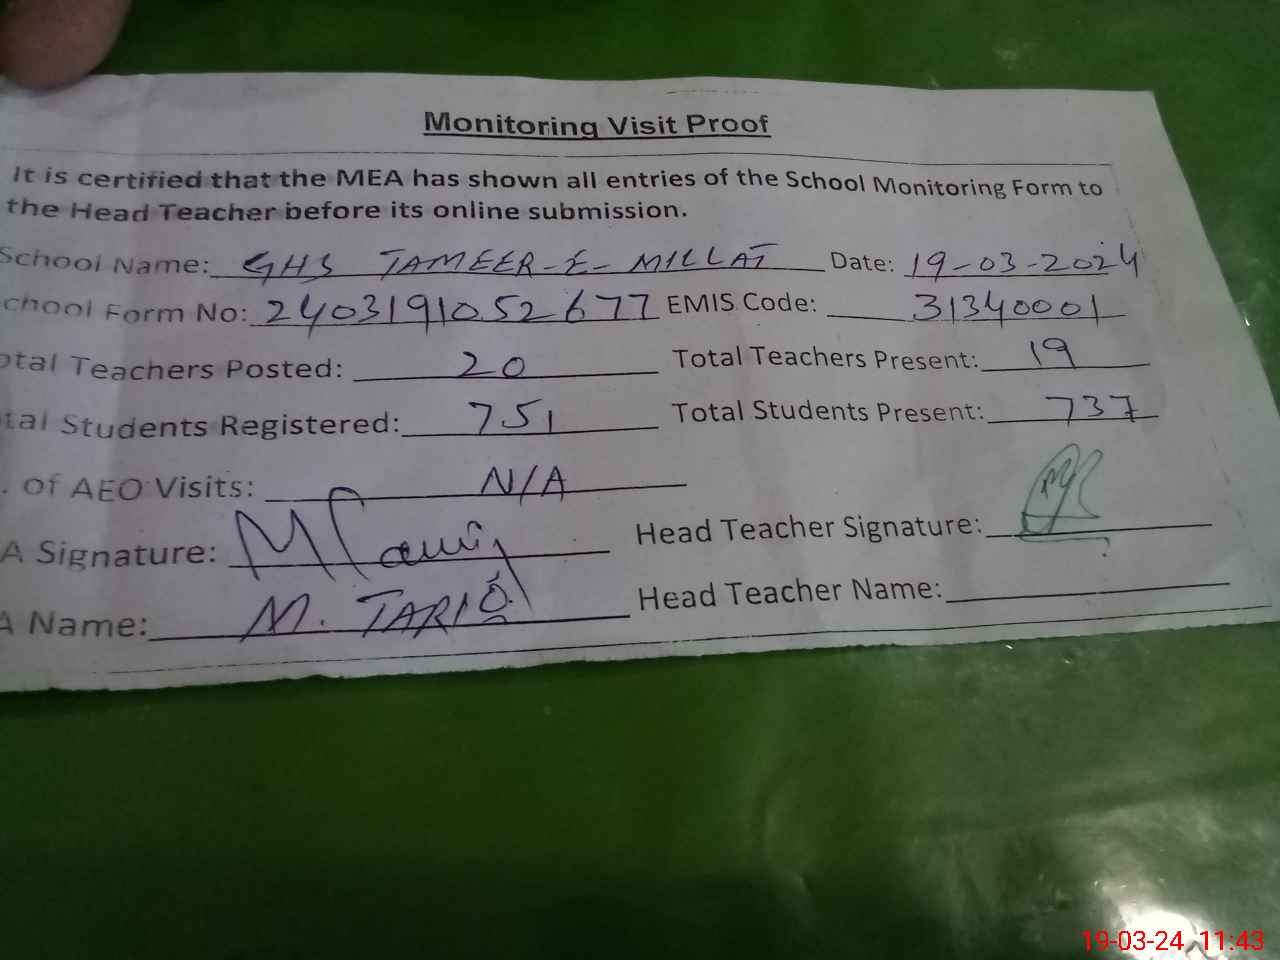 Monitoring Visit Proof
It is certified that the MEA has shown all entries of the School Monitoring Form to
the Head Teacher before its online submission.
School Name: GHS TAMEER-E-MILLAT Date: 19-03-2024
chool Form No: 2403191052677 EMIS Code: 31340001
otal Teachers Posted: 20 Total Teachers Present: 19
tal Students Registered: 751 Total Students Present: 737
. of AEO Visits: N/A
A Signature: Head Teacher Signature:
A Name: M. TARIQ Head Teacher Name:
19-03-24 11:43